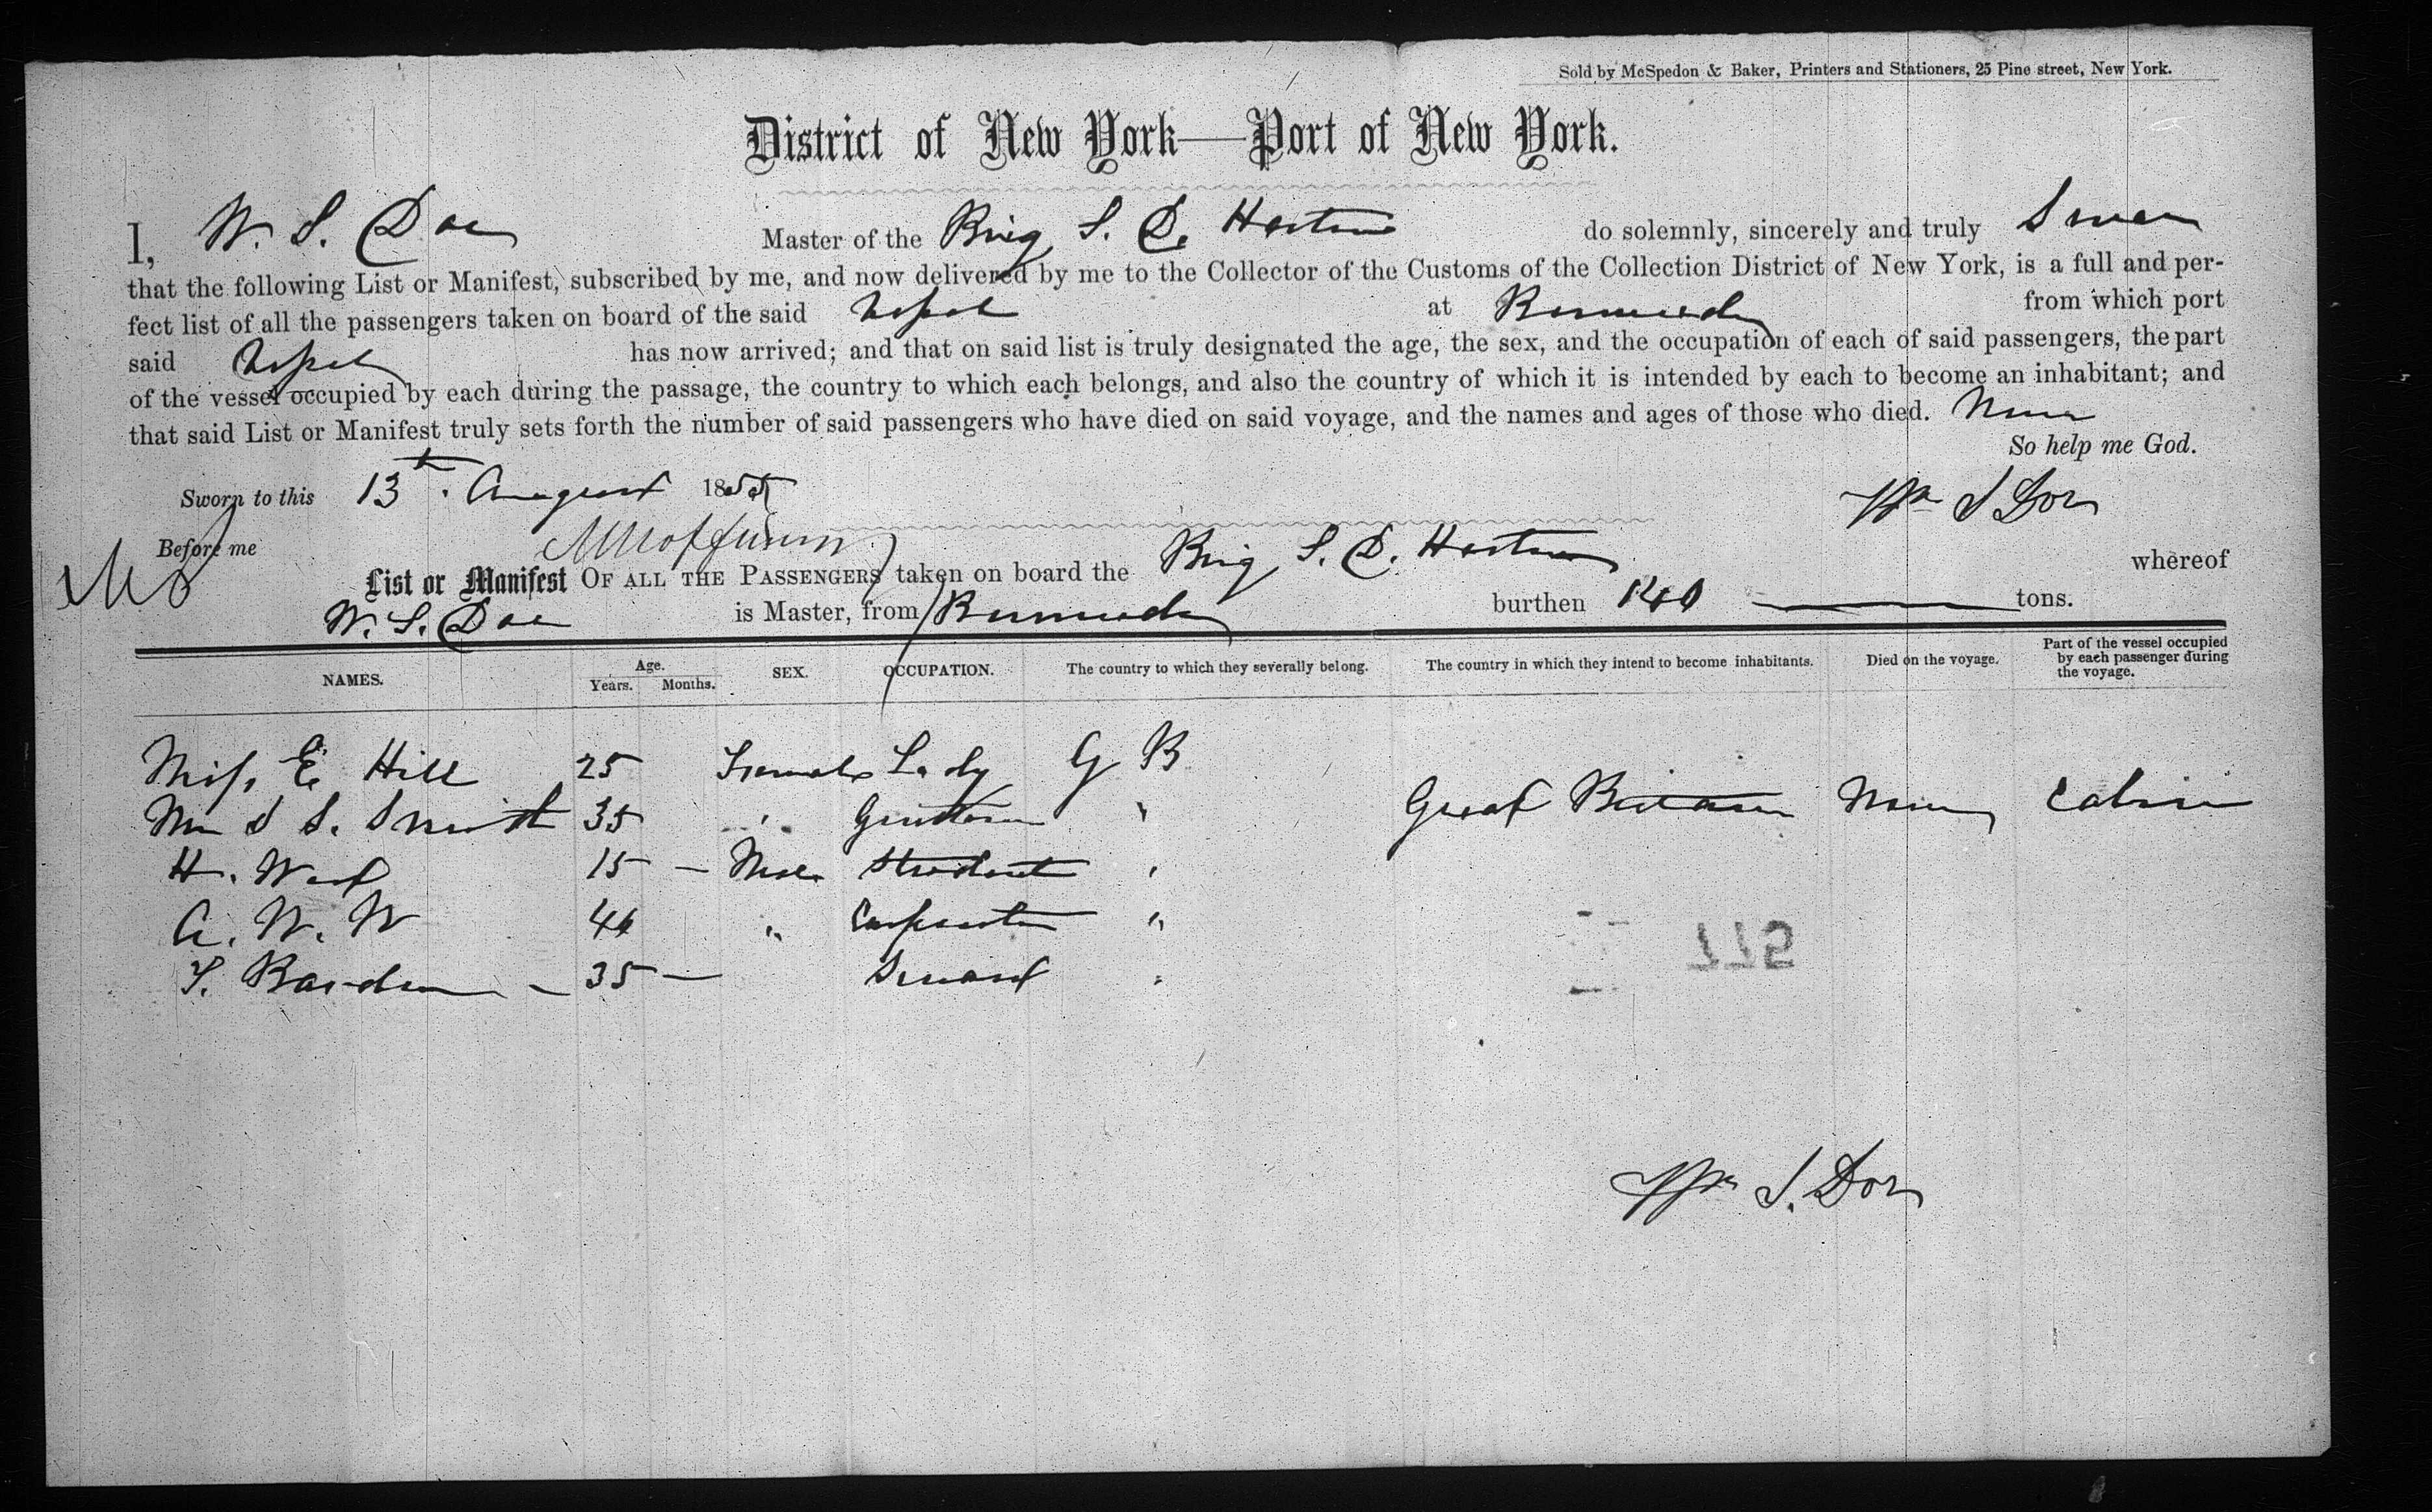 Sold by McSpedon & Baker, Printers and Stationers, 25 Pine street, New York.
District of New York—Port of New York.
I, W. S. Doe Master of the Brig S. D. do solemnly, sincerely and truly Swear
that the following List or Manifest, subscribed by me, and now delivered by me to the Collector of the Customs of the Collection District of New York, is a full and per-
fect list of all the passengers taken on board of the said vessel at Bermuda from which port
said vessel has now arrived; and that on said list is truly designated the age, the sex, and the occupation of each of said passengers, the part
of the vessel occupied by each during the passage, the country to which each belongs, and also the country of which it is intended by each to become an inhabitant; and
that said List or Manifest truly sets forth the number of said passengers who have died on said voyage, and the names and ages of those who died. None
So help me God.
Sworn to this 13th August 1855
Wm S Dor
Before me
List or Manifest OF ALL THE PASSENGERS taken on board the Brig S. D. whereof
W. S. Doe is Master, from Bermuda burthen 140 tons.
NAMES. Age. Years. Months. SEX. OCCUPATION. The country to which they severally belong. The country in which they intend to become inhabitants. Died on the voyage. Part of the vessel occupied by each passenger during the voyage.
Miss E Hill 25 Female Lady G B
S S. Smith 35 " " Great Britain None Cabin
H. 15 — Male Student "
A. W. W 40 " Carpenter "
35 — "
577
Wm S. Dor